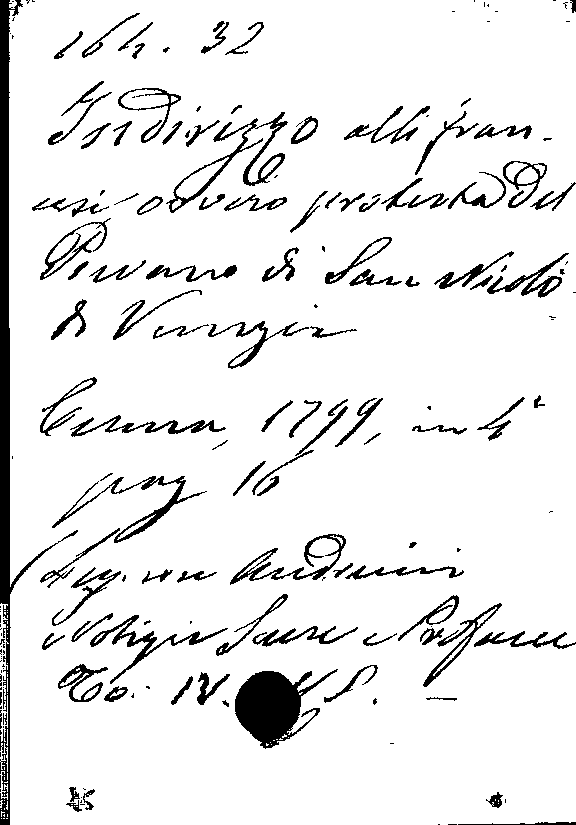 164. 32
Indirizzo alli fran-
cesi ovvero protesta del
Piovano di San Nicolò
di Venezia
Cesena, 1799, in 4°
pag 16
Leg. con Andreini
Notizie Sacre e Profane
To. IV.